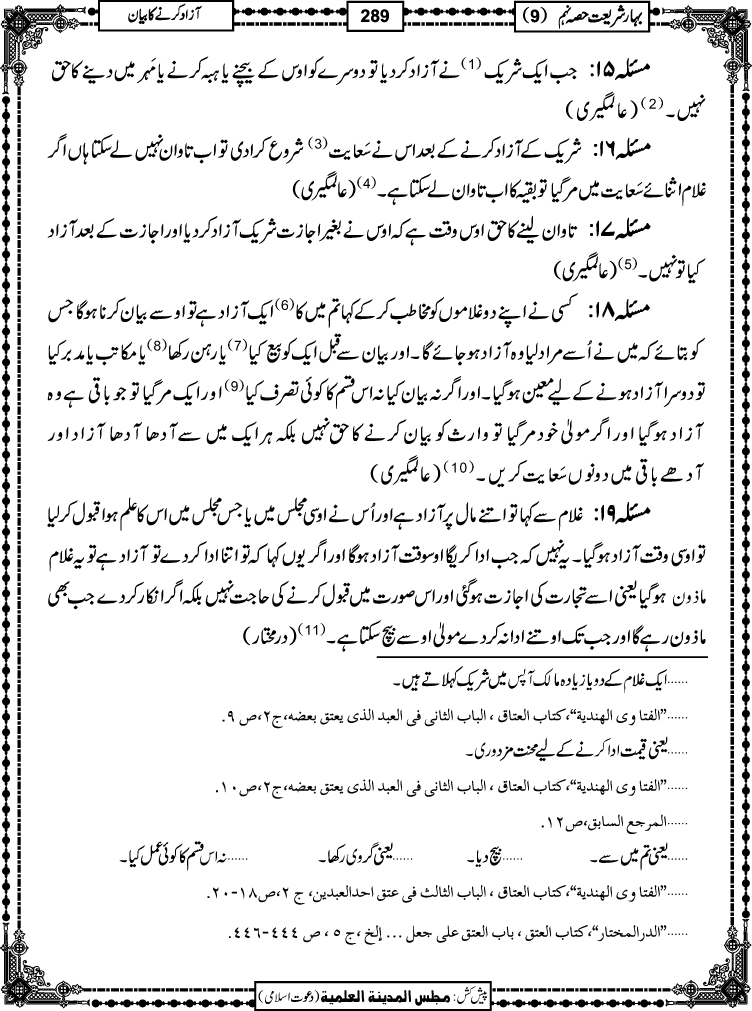 بہارشریعت حصہ نہم (9)
289
آزاد کرنے کا بیان
مسئلہ ۱۵: جب ایک شریک (1) نے آزاد کر دیا تو دوسرے کو اوس کے بیچنے یا ہبہ کرنے یا مَہر میں دینے کا حق
نہیں۔ (2) (عالمگیری)
مسئلہ ۱۶: شریک کے آزاد کرنے کے بعد اس نے سَعایت (3) شروع کرادی تو اب تاوان نہیں لے سکتا ہاں اگر
غلام اثنائے سَعایت میں مرگیا تو بقیہ کا اب تاوان لے سکتا ہے۔ (4) (عالمگیری)
مسئلہ ۱۷: تاوان لینے کا حق اوس وقت ہے کہ اوس نے بغیر اجازت شریک آزاد کر دیا اور اجازت کے بعد آزاد
کیا تو نہیں۔ (5) (عالمگیری)
مسئلہ ۱۸: کسی نے اپنے دو غلاموں کو مخاطب کر کے کہا تم میں کا (6) ایک آزاد ہے تو اوسے بیان کرنا ہوگا جس
کو بتائے کہ میں نے اُسے مراد لیا وہ آزاد ہو جائے گا۔ اور بیان سے قبل ایک کو بیع کیا (7) یا رہن رکھا (8) یا مکاتب یا مدبر کیا
تو دوسرا آزاد ہونے کے لیے معین ہوگیا۔ اور اگر نہ بیان کیا نہ اس قسم کا کوئی تصرف کیا (9) اور ایک مرگیا تو جو باقی ہے وہ
آزاد ہوگیا اور اگر مولیٰ خود مرگیا تو وارث کو بیان کرنے کا حق نہیں بلکہ ہر ایک میں سے آدھا آدھا آزاد اور
آدھے باقی میں دونوں سَعایت کریں۔ (10) (عالمگیری)
مسئلہ ۱۹: غلام سے کہا تو اتنے مال پر آزاد ہے اور اُس نے اوسی مجلس میں یا جس مجلس میں اس کا علم ہوا قبول کر لیا
تو اوسی وقت آزاد ہوگیا۔ یہ نہیں کہ جب ادا کریگا اوسوقت آزاد ہوگا اور اگر یوں کہا کہ تو اتنا ادا کر دے تو آزاد ہے تو یہ غلام
ماذون ہوگیا یعنی اسے تجارت کی اجازت ہوگئی اور اس صورت میں قبول کرنے کی حاجت نہیں بلکہ اگر انکار کر دے جب بھی
ماذون رہے گا اور جب تک اوتنے ادا نہ کر دے مولیٰ اوسے بیچ سکتا ہے۔ (11) (درمختار)
......ایک غلام کے دو یا زیادہ مالک آپس میں شریک کہلاتے ہیں۔
......"الفتاوى الهندية"،کتاب العتاق ، الباب الثانی فی العبد الذی یعتق بعضه،ج۲،ص ۹.
......یعنی قیمت ادا کرنے کے لیے محنت مزدوری۔
......"الفتاوى الهندية"،کتاب العتاق ، الباب الثانی فی العبد الذی یعتق بعضه،ج۲،ص۱۰.
......المرجع السابق،ص۱۲.
......یعنی تم میں سے۔ ......بیچ دیا۔ ......یعنی گروی رکھا۔ ......نہ اس قسم کا کوئی عمل کیا۔
......"الفتاوى الهندية"،کتاب العتاق ، الباب الثالث فی عتق احدالعبدین، ج ۲،ص۱۸-۲۰.
......"الدرالمختار"، كتاب العتق ، باب العتق على جعل ... إلخ ،ج ٥ ، ص ٤٤٤-٤٤٦.
پیش کش: مجلس المدينة العلمية (دعوت اسلامی)